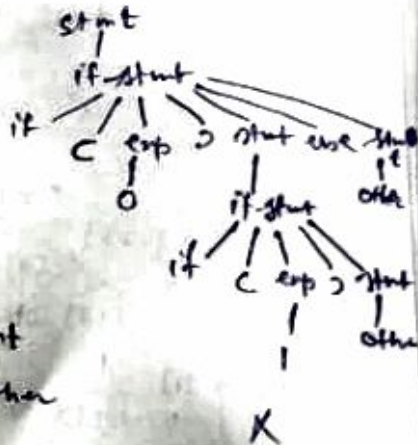 stmt
if-stmt
if ( exp ) stmt else stmt
0 other
if-stmt
if ( exp ) stmt
1 other
X